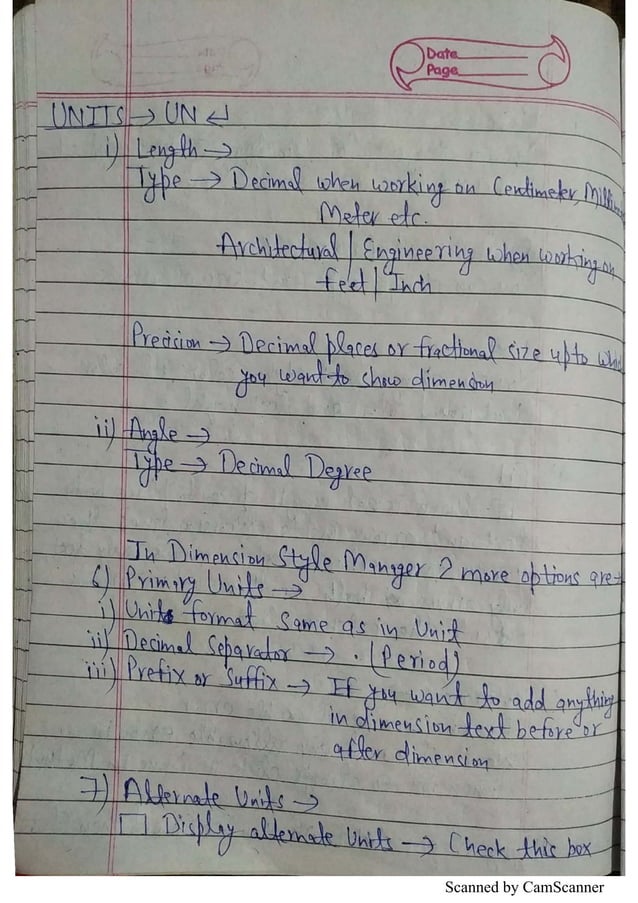 Date
Page
UNITS → UN ↵
i) Length →
Type → Decimal when working on Centimeter,
Meter etc.
Architectural | Engineering when working on
feet | Inch
Precision → Decimal places or fractional size upto
you want to show dimension
ii) Angle →
Type → Decimal Degree
In Dimension Style Manager 2 more options are →
6) Primary Units →
i) Units format same as in Unit
ii) Decimal Separator → . (Period)
iii) Prefix or Suffix → If you want to add anything
in dimension text before or
after dimension
7) Alternate Units →
□ Display alternate Units → Check this box
Scanned by CamScanner